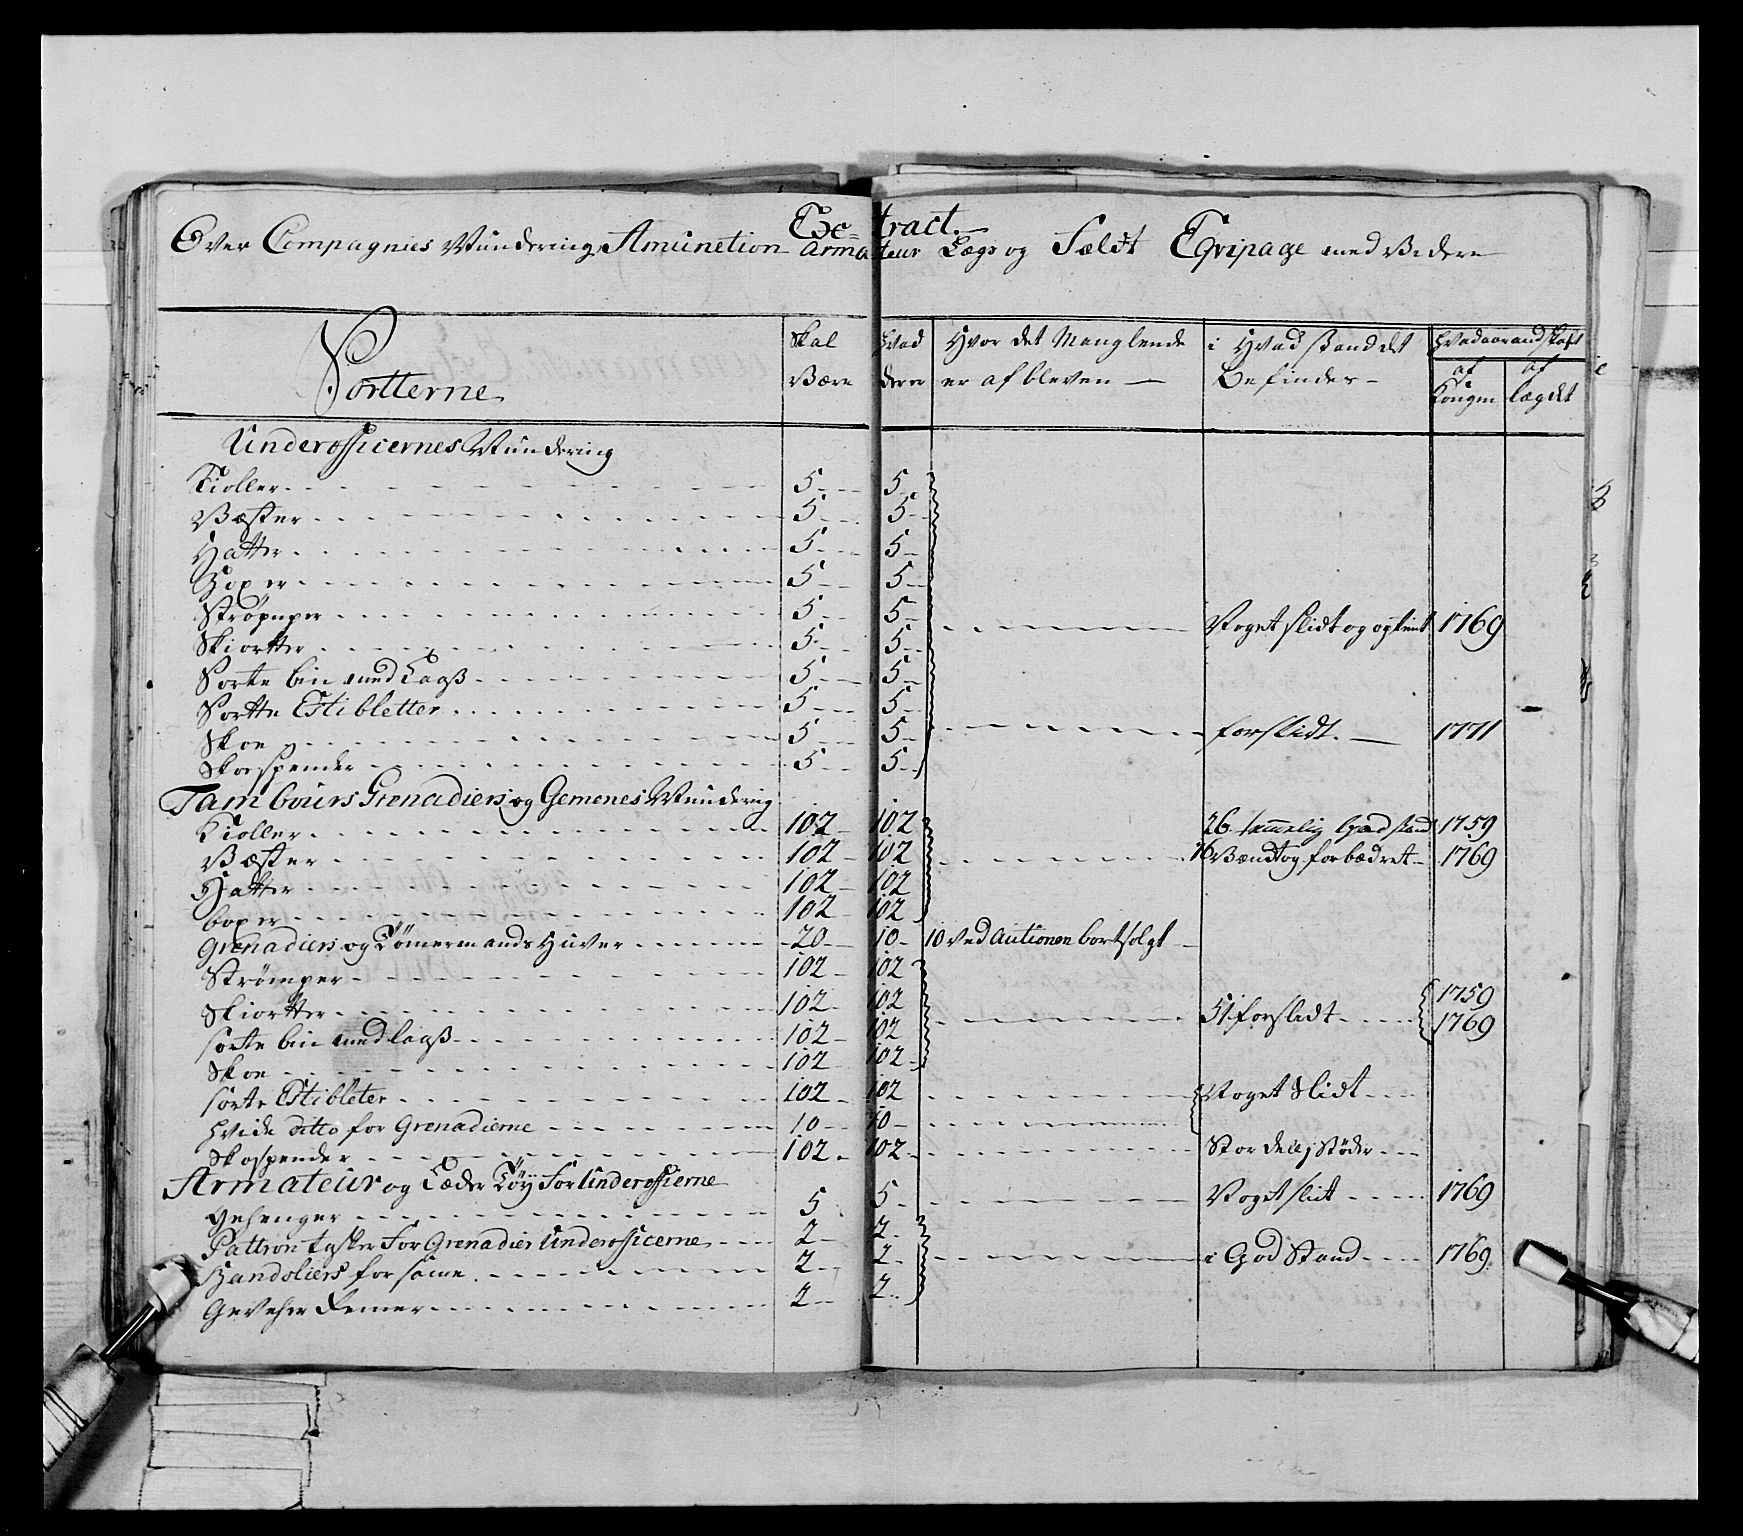 Extract.
Over Compagnies Mundering Amunetion Armateur Lægs og Feldt Eqvipage med Videre
Sortterne
Skal Være
Hvad derer
Hvor det Manglende er afbleven
i Hvad stand det Befindes
Hvadaar andskaft
af Kongen
af lægdet
Underofficernes Mundering
Kioller 5 5
Væster 5 5
Hatter 5 5
Boxer 5 5
Strømper 5 5 Noget slidt og 1769
Skiortter 5 5
Sorte bin med Laaß 5 5
Sortte Estibletter 5 5
Skoe 5 5 forslidt. 1771
Skoespender 5 5
Tambours Grenadiers og Gemenes Mundering
Kioller 102 102 26 temmelig God stand 1759
Væster 102 102 76 Vendt og forbædret 1769
Hatter 102 102
boxer 102 102
Grenadiers og Tømermands Huver 20 10 10 ved Autionen bortsolgt
Strømper 102 102
Skiortter 102 102 51 forsledt 1759
sorte bin med laaß 102 102 1769
Skoe 102 102
sorte Estibleter 102 102 Noget Slidt
Hvide ditto for Grenadierne 10 10
Skospender 102 102 Stor deelej Støder
Armateur og Læder Tøÿ For Underofficerne
Gehenger 5 5 Noget slidt 1769
Pattron tasker For Grenadier Underofficerne 2 2
Bandoliers for same 2 2 i God Stand 1769
Gevehr Remer 2 2